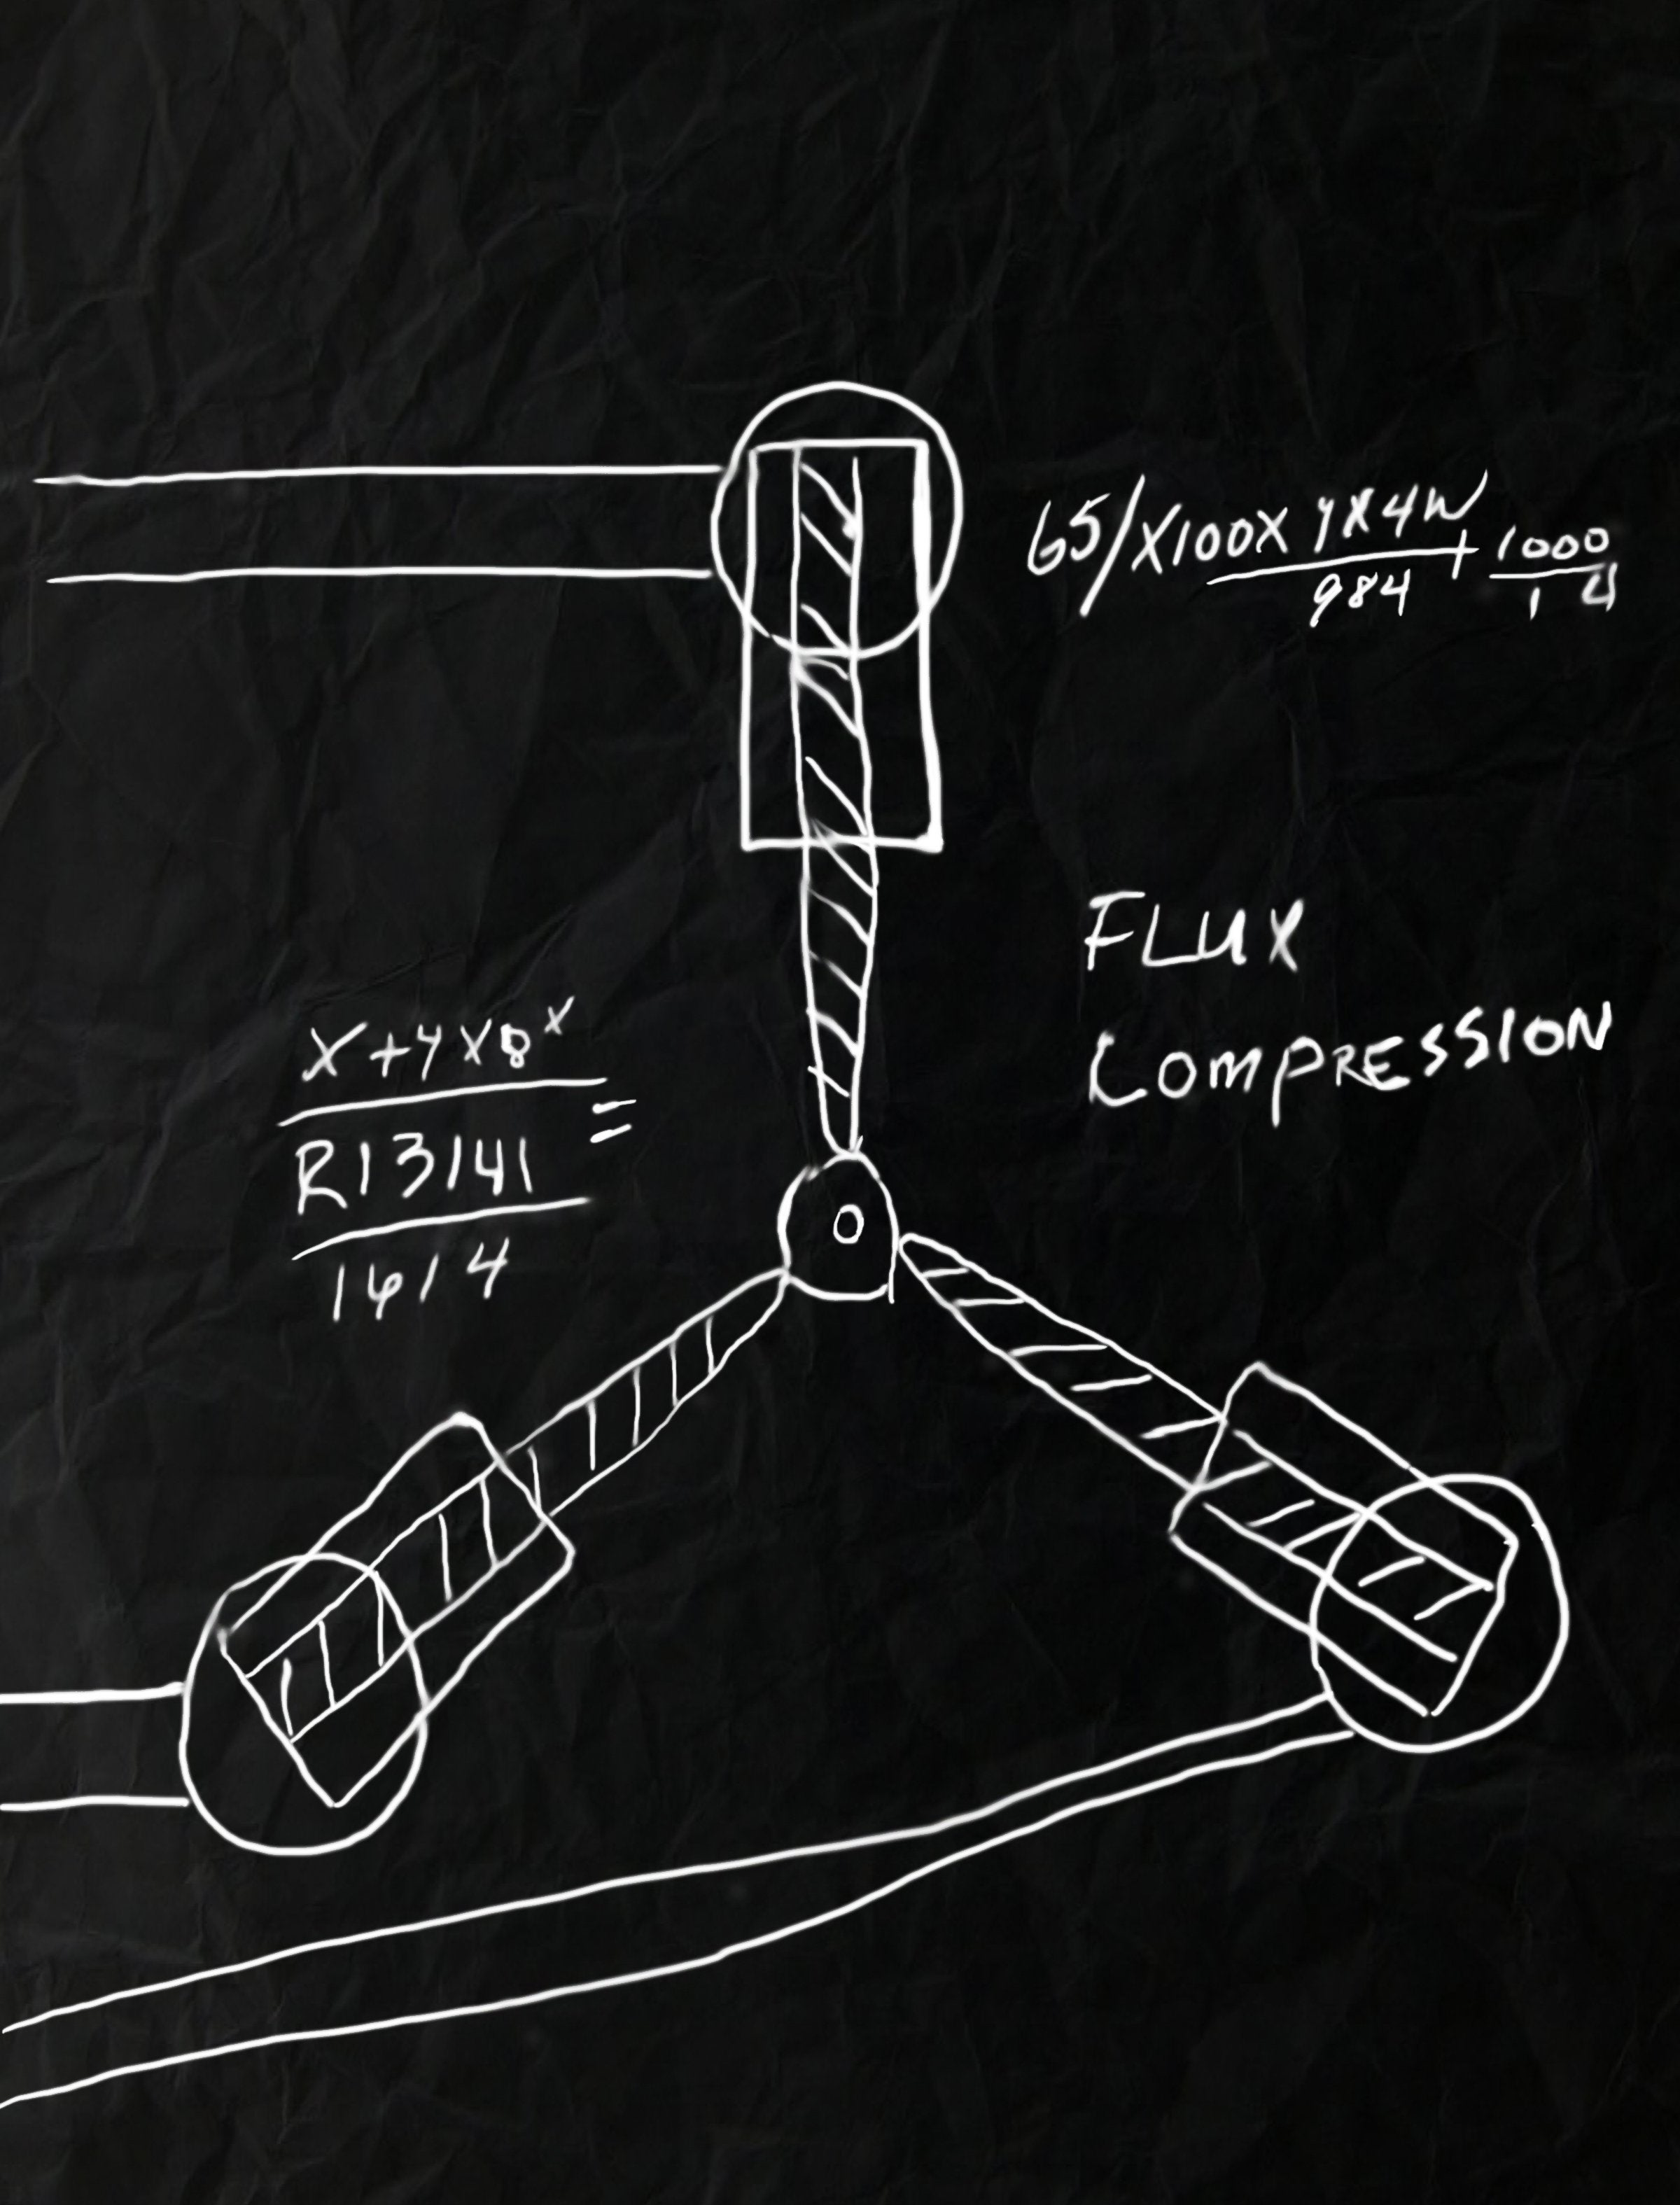 65/X100X YX4W
984
+ 1000
14
FLUX
COMPRESSION
X+YX8^X
R13141
=
1614